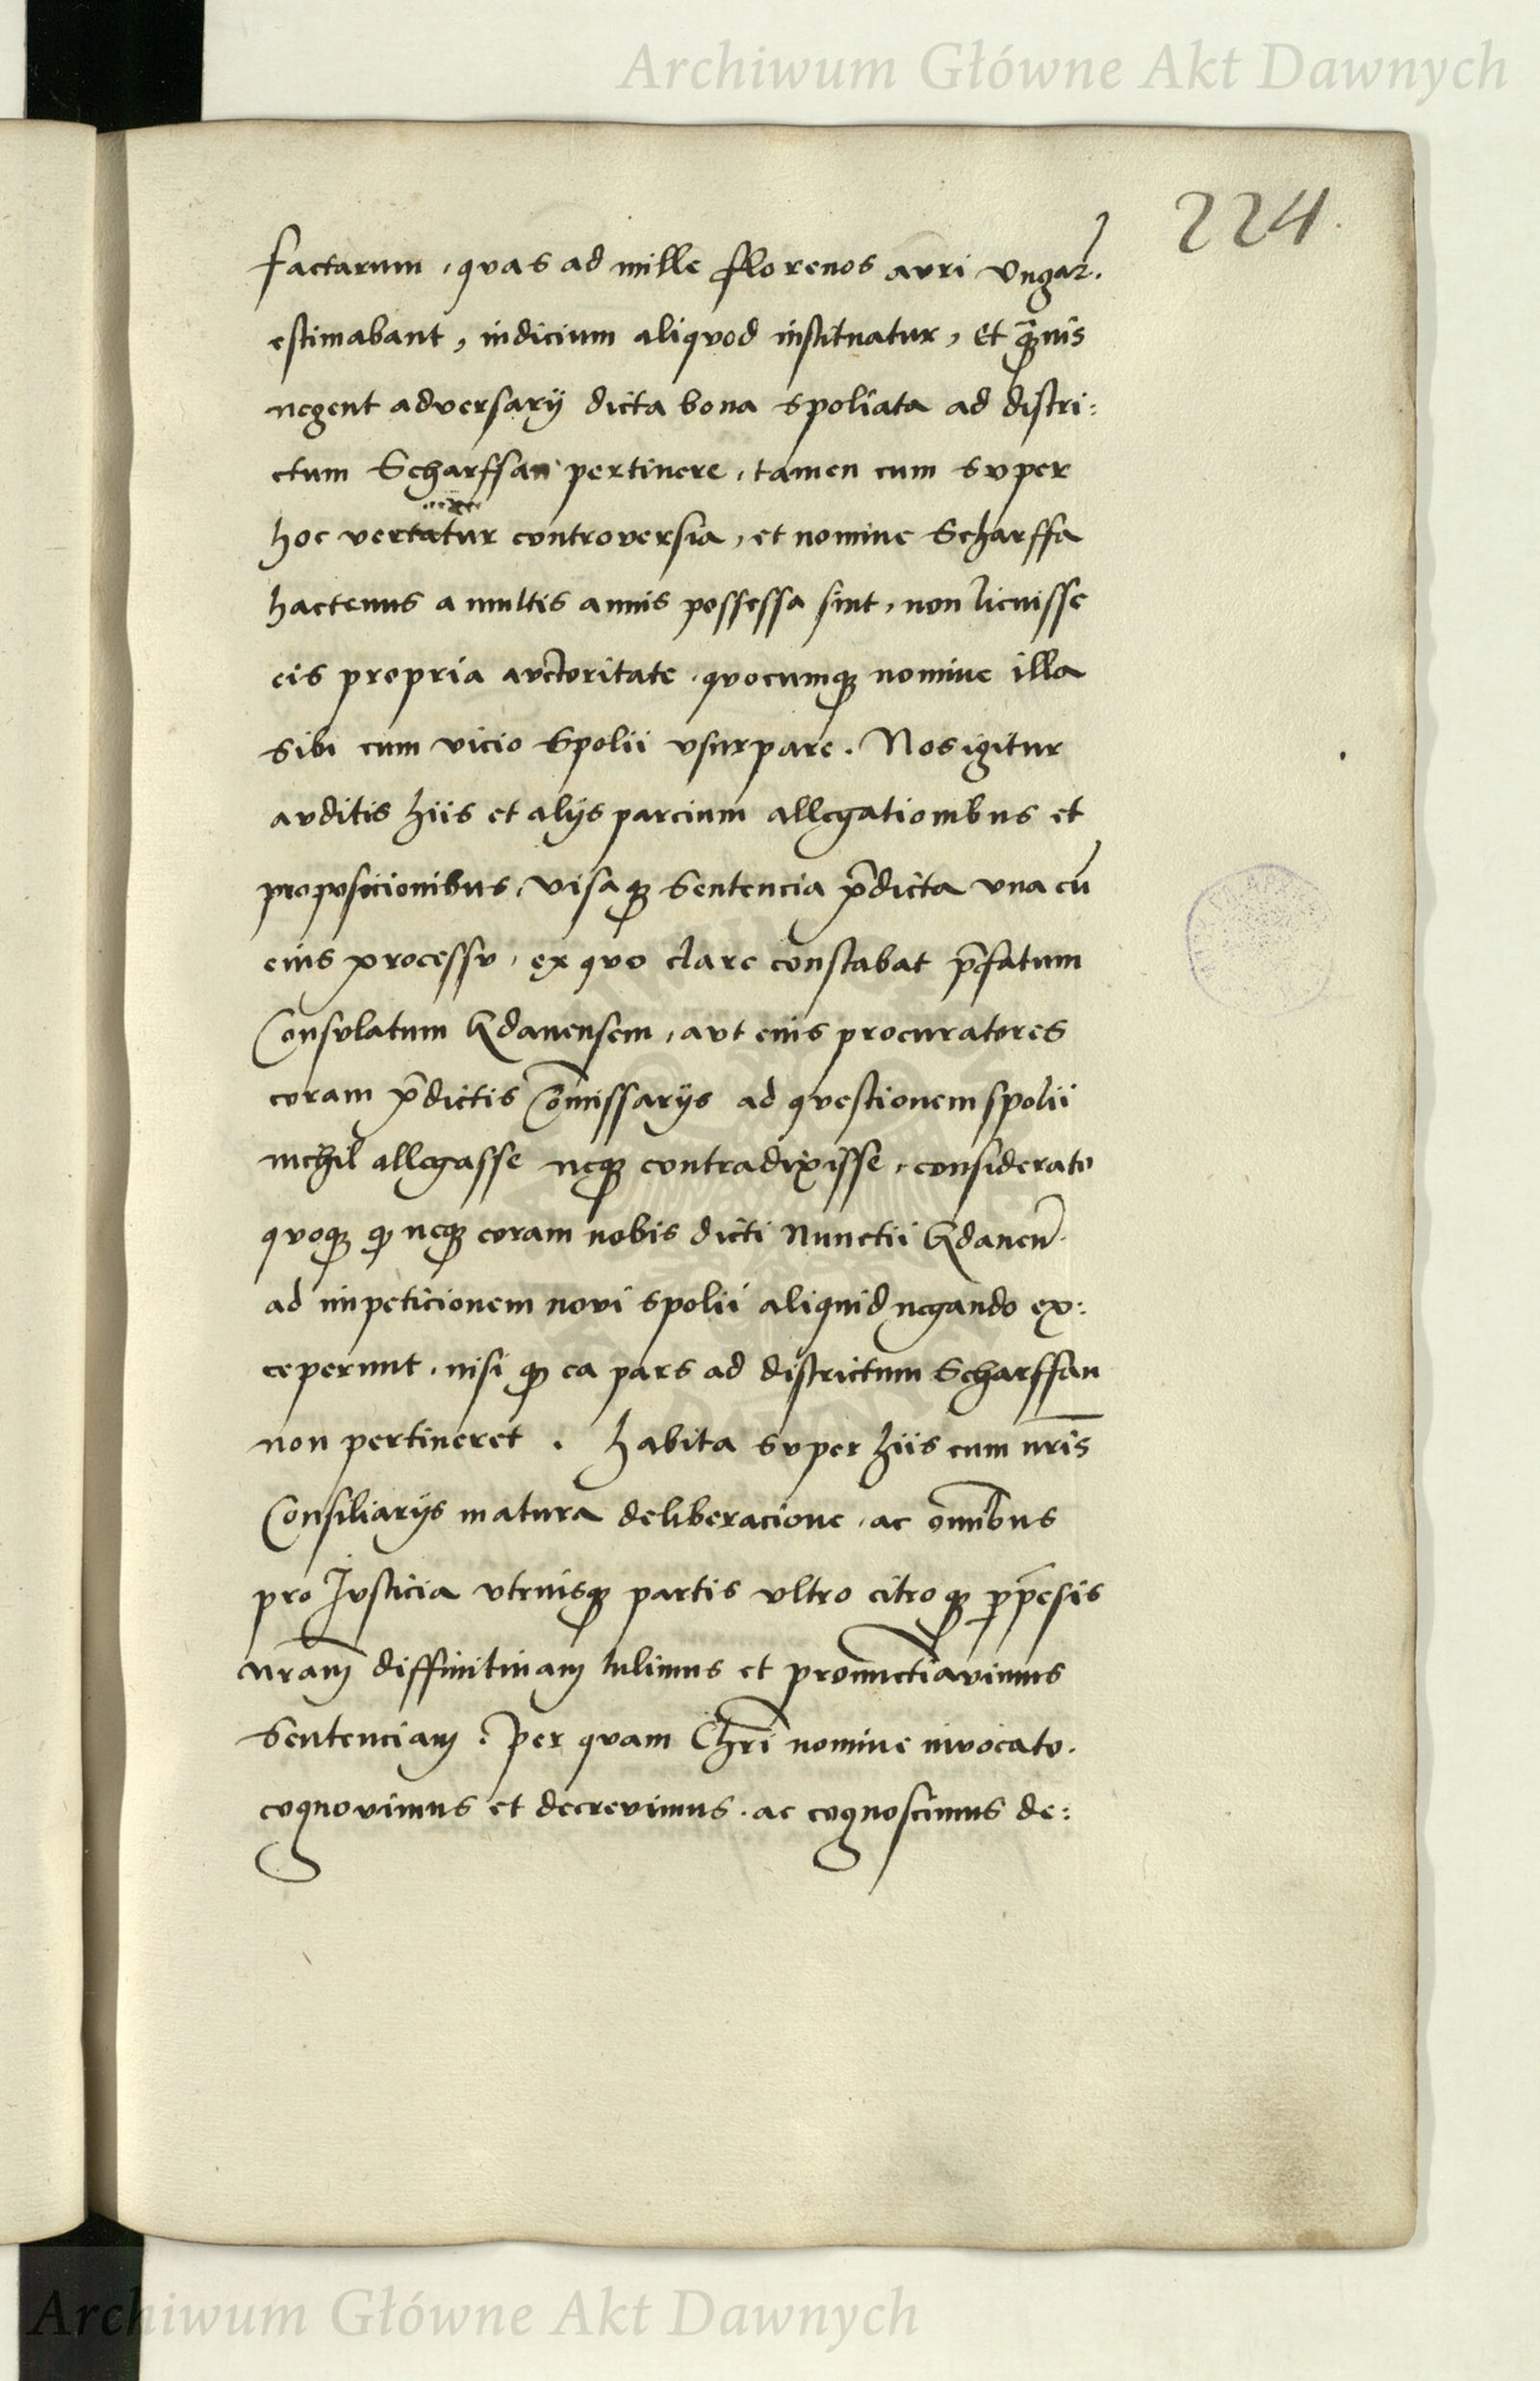 Archiwum Główne Akt Dawnych
224
factarum, qvas ad mille florenos avri Vngar̃.
estimabant, iudicium aliqvod instituatur, Et q̃uis
negent adversarij dicta bona spoliata ad distri:
ctum Scharffan pertinere, tamen cum svper
hoc vertatur controversia, et nomine Scharffa
hactenus a multis annis possessa sint, non licuisse
eis propria avctoritate qvocumqꝫ nomine illa
sibi cum vicio Spolii vsurpare. Nos igitur
avditis hiis et alijs parcium allegationibus et
proposicionibus, visaqꝫ Sentencia p̃dicta vna cũ
eius processv, ex qvo clare constabat p̃fatum
Consvlatum Gdanensem, avt eius procuratores
coram p̃dictis Com̃issarijs ad qvestionem spolii
nichil allegasse neqꝫ contradixisse, considerato
qvoqꝫ ꝙ neqꝫ coram nobis dicti Nunctii Gdaneñ.
ad impeticionem novi spolii aliquid negando ex:
ceperunt, nisi ꝙ ea pars ad districtum Scharffan
non pertineret. habita svper hiis cum nr̃is
Consiliarijs matura deliberacione, ac om̃ibus
pro Jvsticia vtriusqꝫ partis vltro citroqꝫ p̱p̃esis
nr̃am diffinitiuam tulimus et pronunctiavimus
Sentenciam: per qvam Chr̃i nomine invocato.
cognovimus et decrevimus. ac cognoscimus de:
Archiwum Główne Akt Dawnych